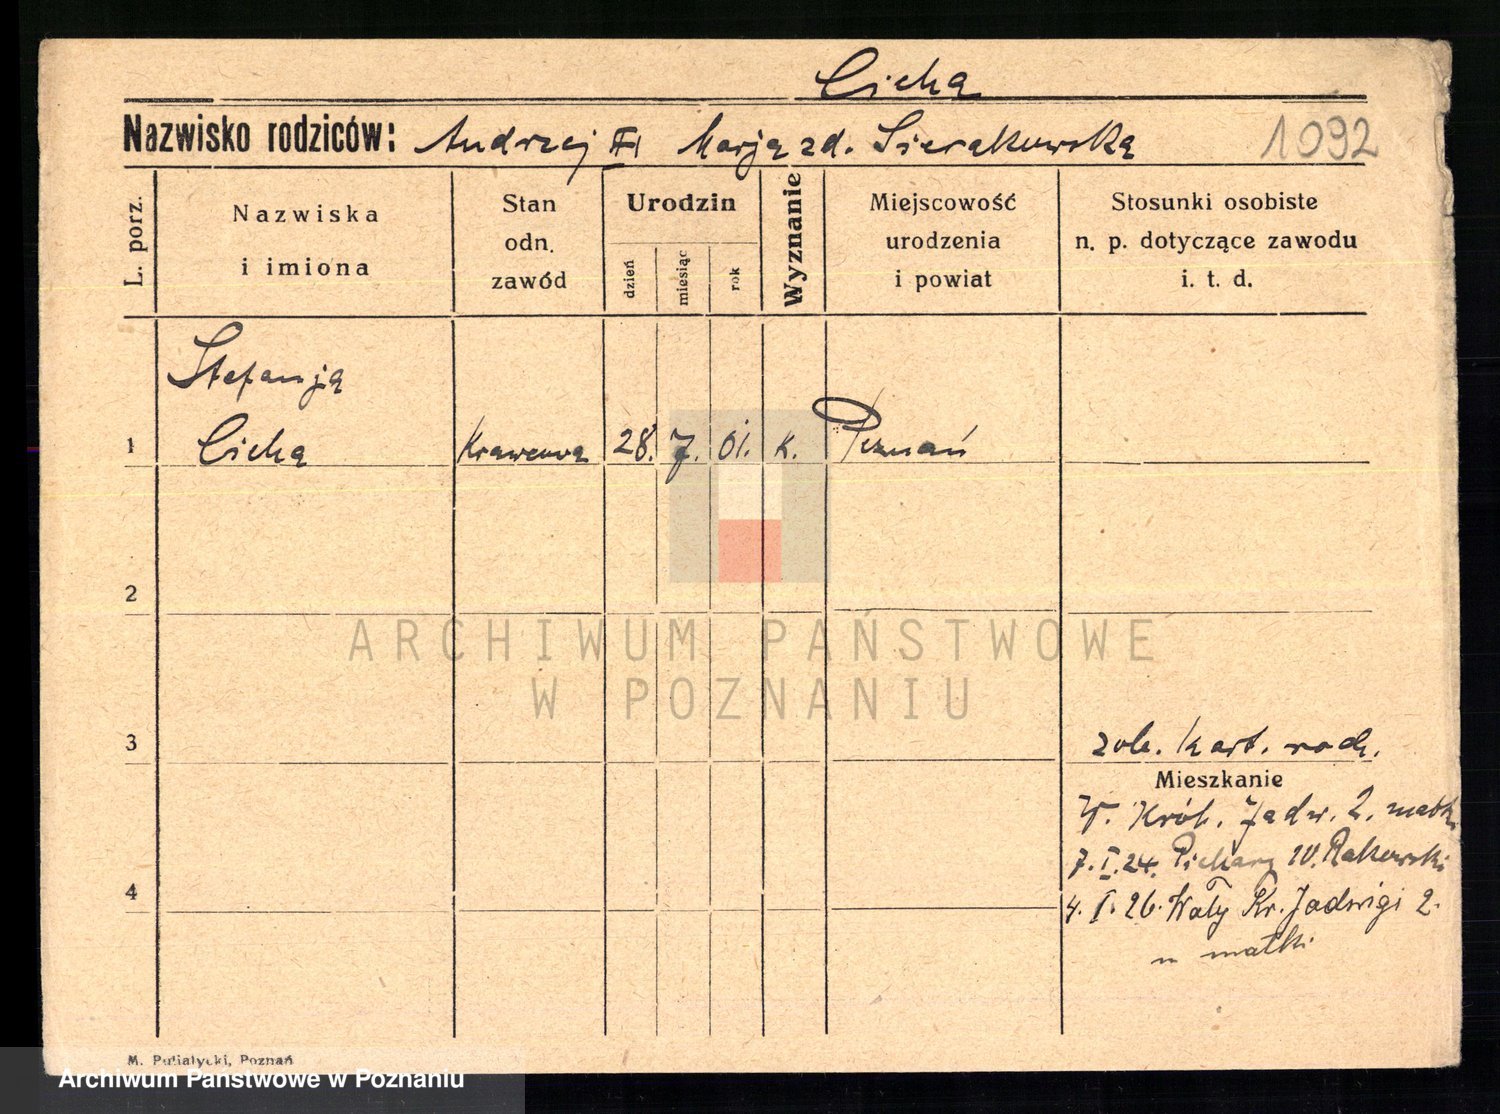 Cicha
Nazwisko rodziców: Andrzej Marja zd. Sierakowska
1092
L. porz.
Nazwiska
i imiona
Stan
odn.
zawód
Urodzin
dzień
miesiąc
rok
Wyznanie
Miejscowość
urodzenia
i powiat
Stosunki osobiste
n. p. dotyczące zawodu
i. t. d.
Stefanja
1 Cicha Krawcowa 28. 7. 01. k. Poznań
2
ARCHIWUM PAŃSTWOWE
W POZNANIU
3 zob. kart. rodz.
Mieszkanie
W. Król. Jadw. 2. matk.
7.I.24. Piekary 10. Rakowski
4
4. I. 26. Wały Kr. Jadwigi 2.
u matki
M. Putiatycki, Poznań
Archiwum Państwowe w Poznaniu